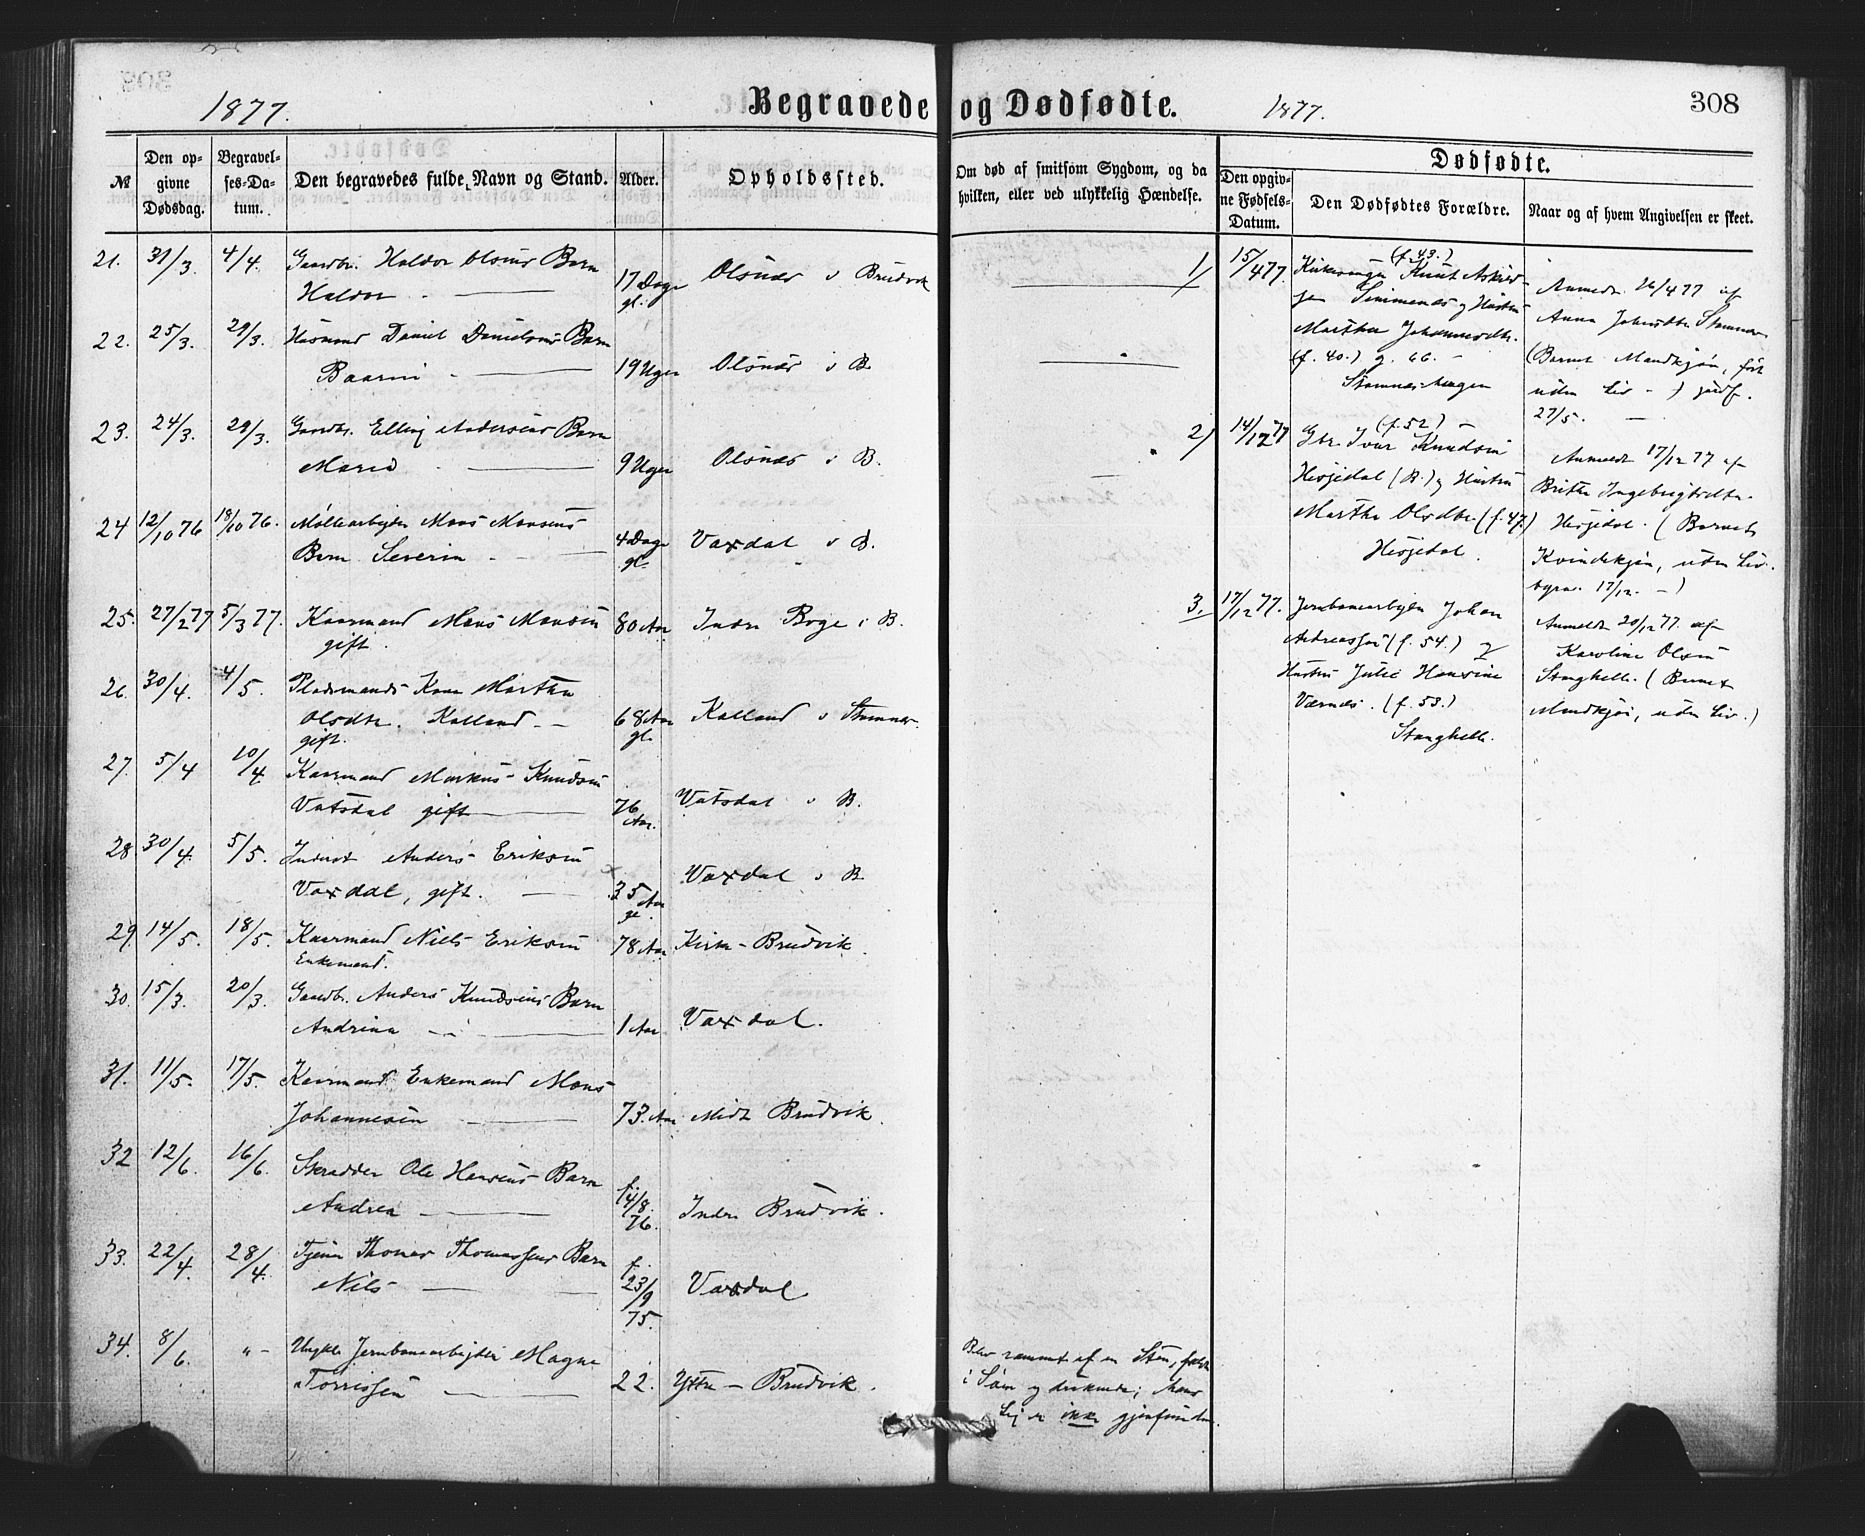 1877.
Begravede og Dødfødte.
1877.
308
№
Den opgivne Dødsdag.
Begravelses-Datum.
Den begravedes fulde Navn og Stand.
Alder.
Opholdssted.
Om død af smitsom Sygdom, og da hvilken, eller ved ulykkelig Hændelse.
Dødfødte.
Den opgivne Fødsels-Datum.
Den Dødfødtes Forældre.
Naar og af hvem Angivelsen er skeet.
21. 31/3. 4/4. Gaardbr. Haldor Olsens Barn
Haldor 17 Dage gl. Olsnæs i Brudvik
22. 25/3. 29/3. Husmand Daniel Danielsens Barn
19 Uger Olsnæs i B.
23. 24/3. 29/3. Gaardbr. Elling Andersens Barn
Marie 9 Uger Olsnæs i B.
24 12/10 76 18/10 76. Møllearbejder Mons Monsens
Barn Severin 4 Dage gl. Vaxdal i B.
25. 27/2 77 5/3 77. Kaarmand Mons Monsen
gift. 80 Aar Indre Boge i B.
26. 30/4. 4/5. Pladsmands Kone Martha
Olsdtr. Kalland
gift. 68 Aar gl. Kalland i Stamnes.
27. 5/4 10/4. Kaarmand Markus Knudsen
Vatsdal gift 76 Aar. Vatsdal i B.
28 30/4. 5/5. Inderst Anders Eriksen
Vaxdal, gift. 35 Aar gl. Vaxdal i B.
29. 14/5. 18/5. Kaarmand Niels Eriksen
Enkemand. 78 Aar Kirke-Brudvik.
30. 15/3. 20/3. Gaardbr. Anders Knudsens Barn
Andrina 1 Aar Vaxdal.
31. 11/5. 17/5. Kaarmand Enkemand Mons
Johannesen 73. Aar Midt Brudvik.
32 12/6. 16/6. Skrædder Ole Hansens Barn
Andrea f. 14/8. 76. Indre Brudvik.
33. 22/4. 28/4. Tjener Thomas Thomassens Barn
Nils f. 23/9 75. Vaxdal
34. 8/6. " - Ungkl. Jernbanearbejder Magne
Torrissen 22. Yttre-Brudvik.
Blev rammet af en Sten, faldt
i Søen og druknede; hans
Lig er ikke gjenfundet.
1) 15/4 77. (f. 43.)
Kirkesanger Knut Askild-
sen Simmenæs og Hustru
Martha Johannesdtr.
(f. 40.) g. 66. -
Stamneshagen
Anmeldt 26/4 77 af
Anna Stamnes
(Barnet Mandkjøn, født
uden Liv - )
27/5.
2) 14/12 77 (f. 52)
Gbr. Ivar Knudsen
Hesjedal (B.) og Hustru
Martha Olsdtr. (f. 47.)
Hesjedal.
Anmeldt 17/12 77 af
Britha Ingebrigtsdtr.
Hesjedal. (Barnet
Kvindekjøn, uden Liv.
17/12. - )
3. 17/12 77. Jernbanearbejder Johan
Andreassen (f. 54.) og
Hustru Julie Hansine
Værnes. (f. 53.)
Stanghelle.
Anmeldt 20/12 77. af
Karoline Olsen
Stanghelle. (Barnet
Mandkjøn, uden Liv.)